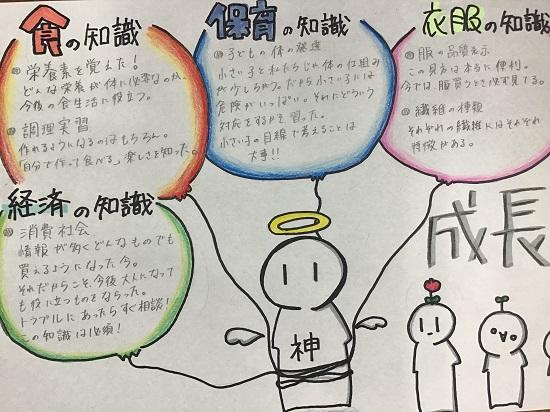 食の知識
◎栄養素を覚えた!
どんな栄養が体に必要なのか、
今後の食生活に役立つ。
◎調理実習
作れるようになるのはもちろん、
「自分で作って食べる」楽しさを知った。
保育の知識
◎子どもの体の発達
小さい子と私たちじゃ体の仕組み
が少しちがう。だから小さい子には
危険がいっぱい。それにどういう
対応をするかを習った。
小さい子の目線で考えることは
大事!!
衣服の知識
◎服の品質表示
この見方は本当に便利。
今では、服買うとき必ず見てる。
◎繊維の種類
それぞれの繊維にはそれぞれ
特徴がある。
経済の知識
◎消費社会
情報が多くどんなものでも
買えるようになった今。
それだからこそ、今後大人になって
も役に立つものをならった。
トラブルにあったらすぐ相談!
この知識は必須!
成長
神